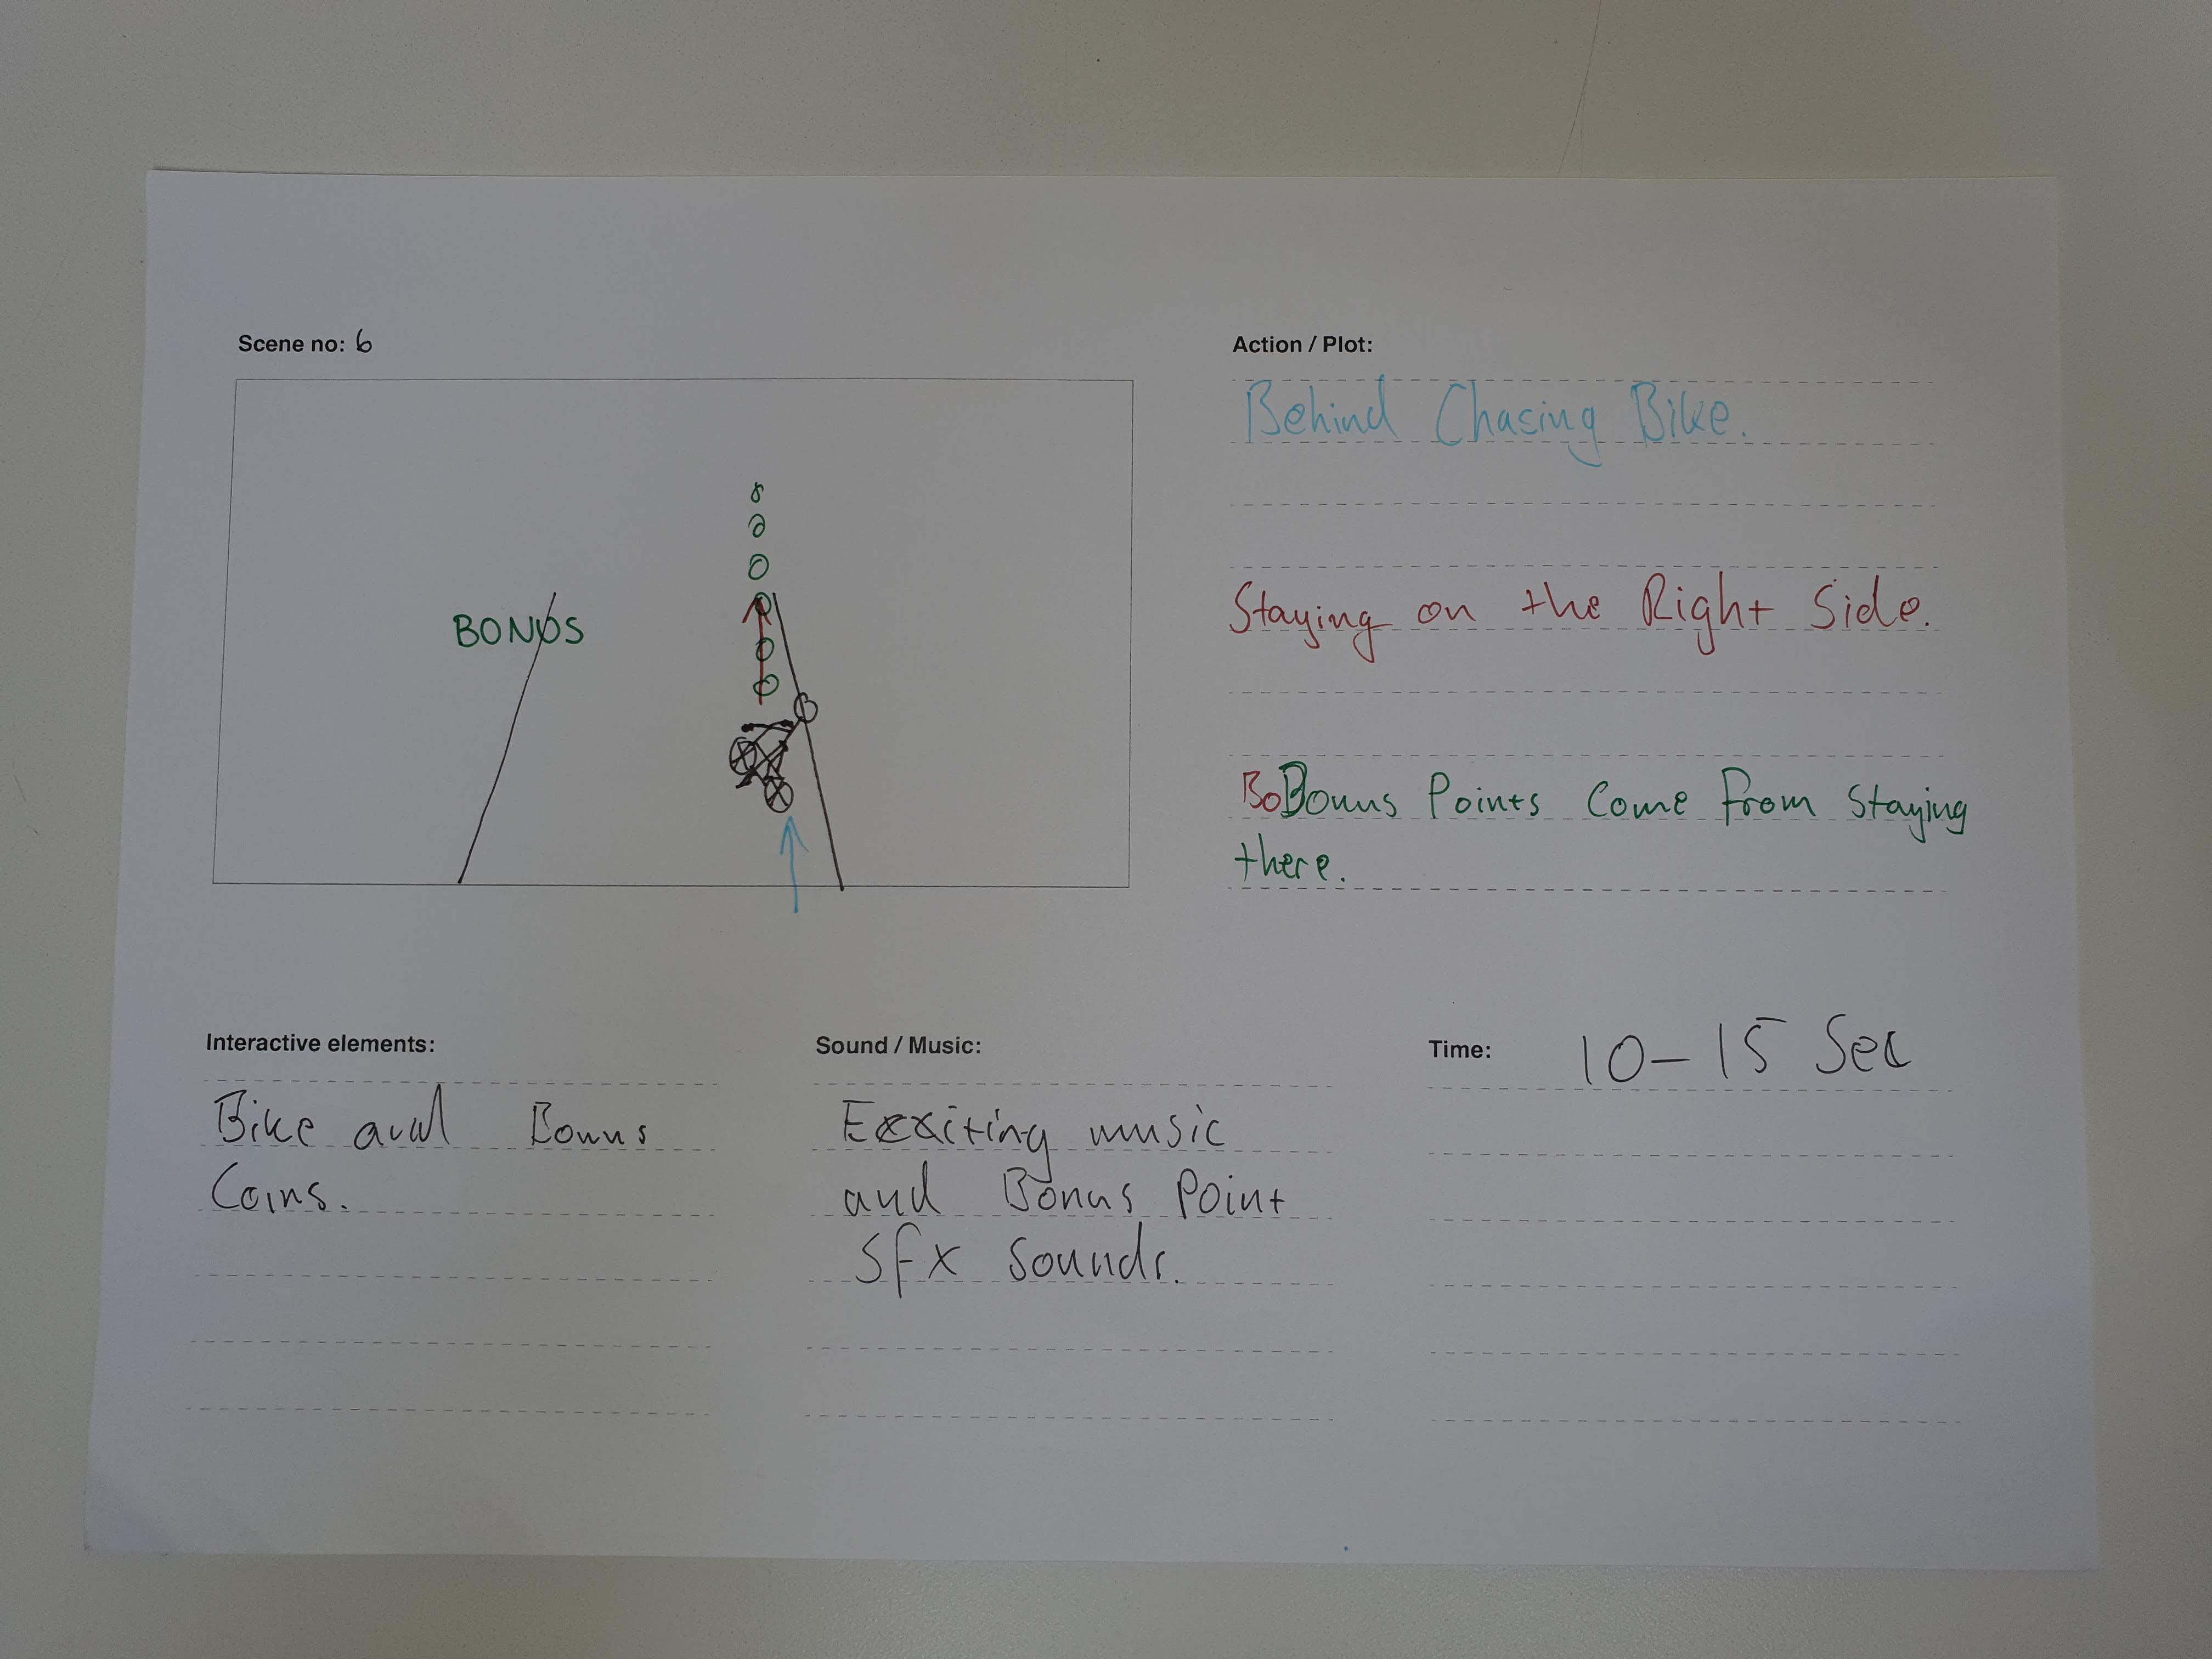 Scene no: 6
BONUS
Action / Plot:
Behind Chasing Bike.
Staying on the Right Side.
BoBonus Points Come From Staying
there.
Interactive elements:
Bike and Bonus
Coins.
Sound / Music:
Exxiting music
and Bonus Point
Sfx Sounds.
Time: 10-15 Sec